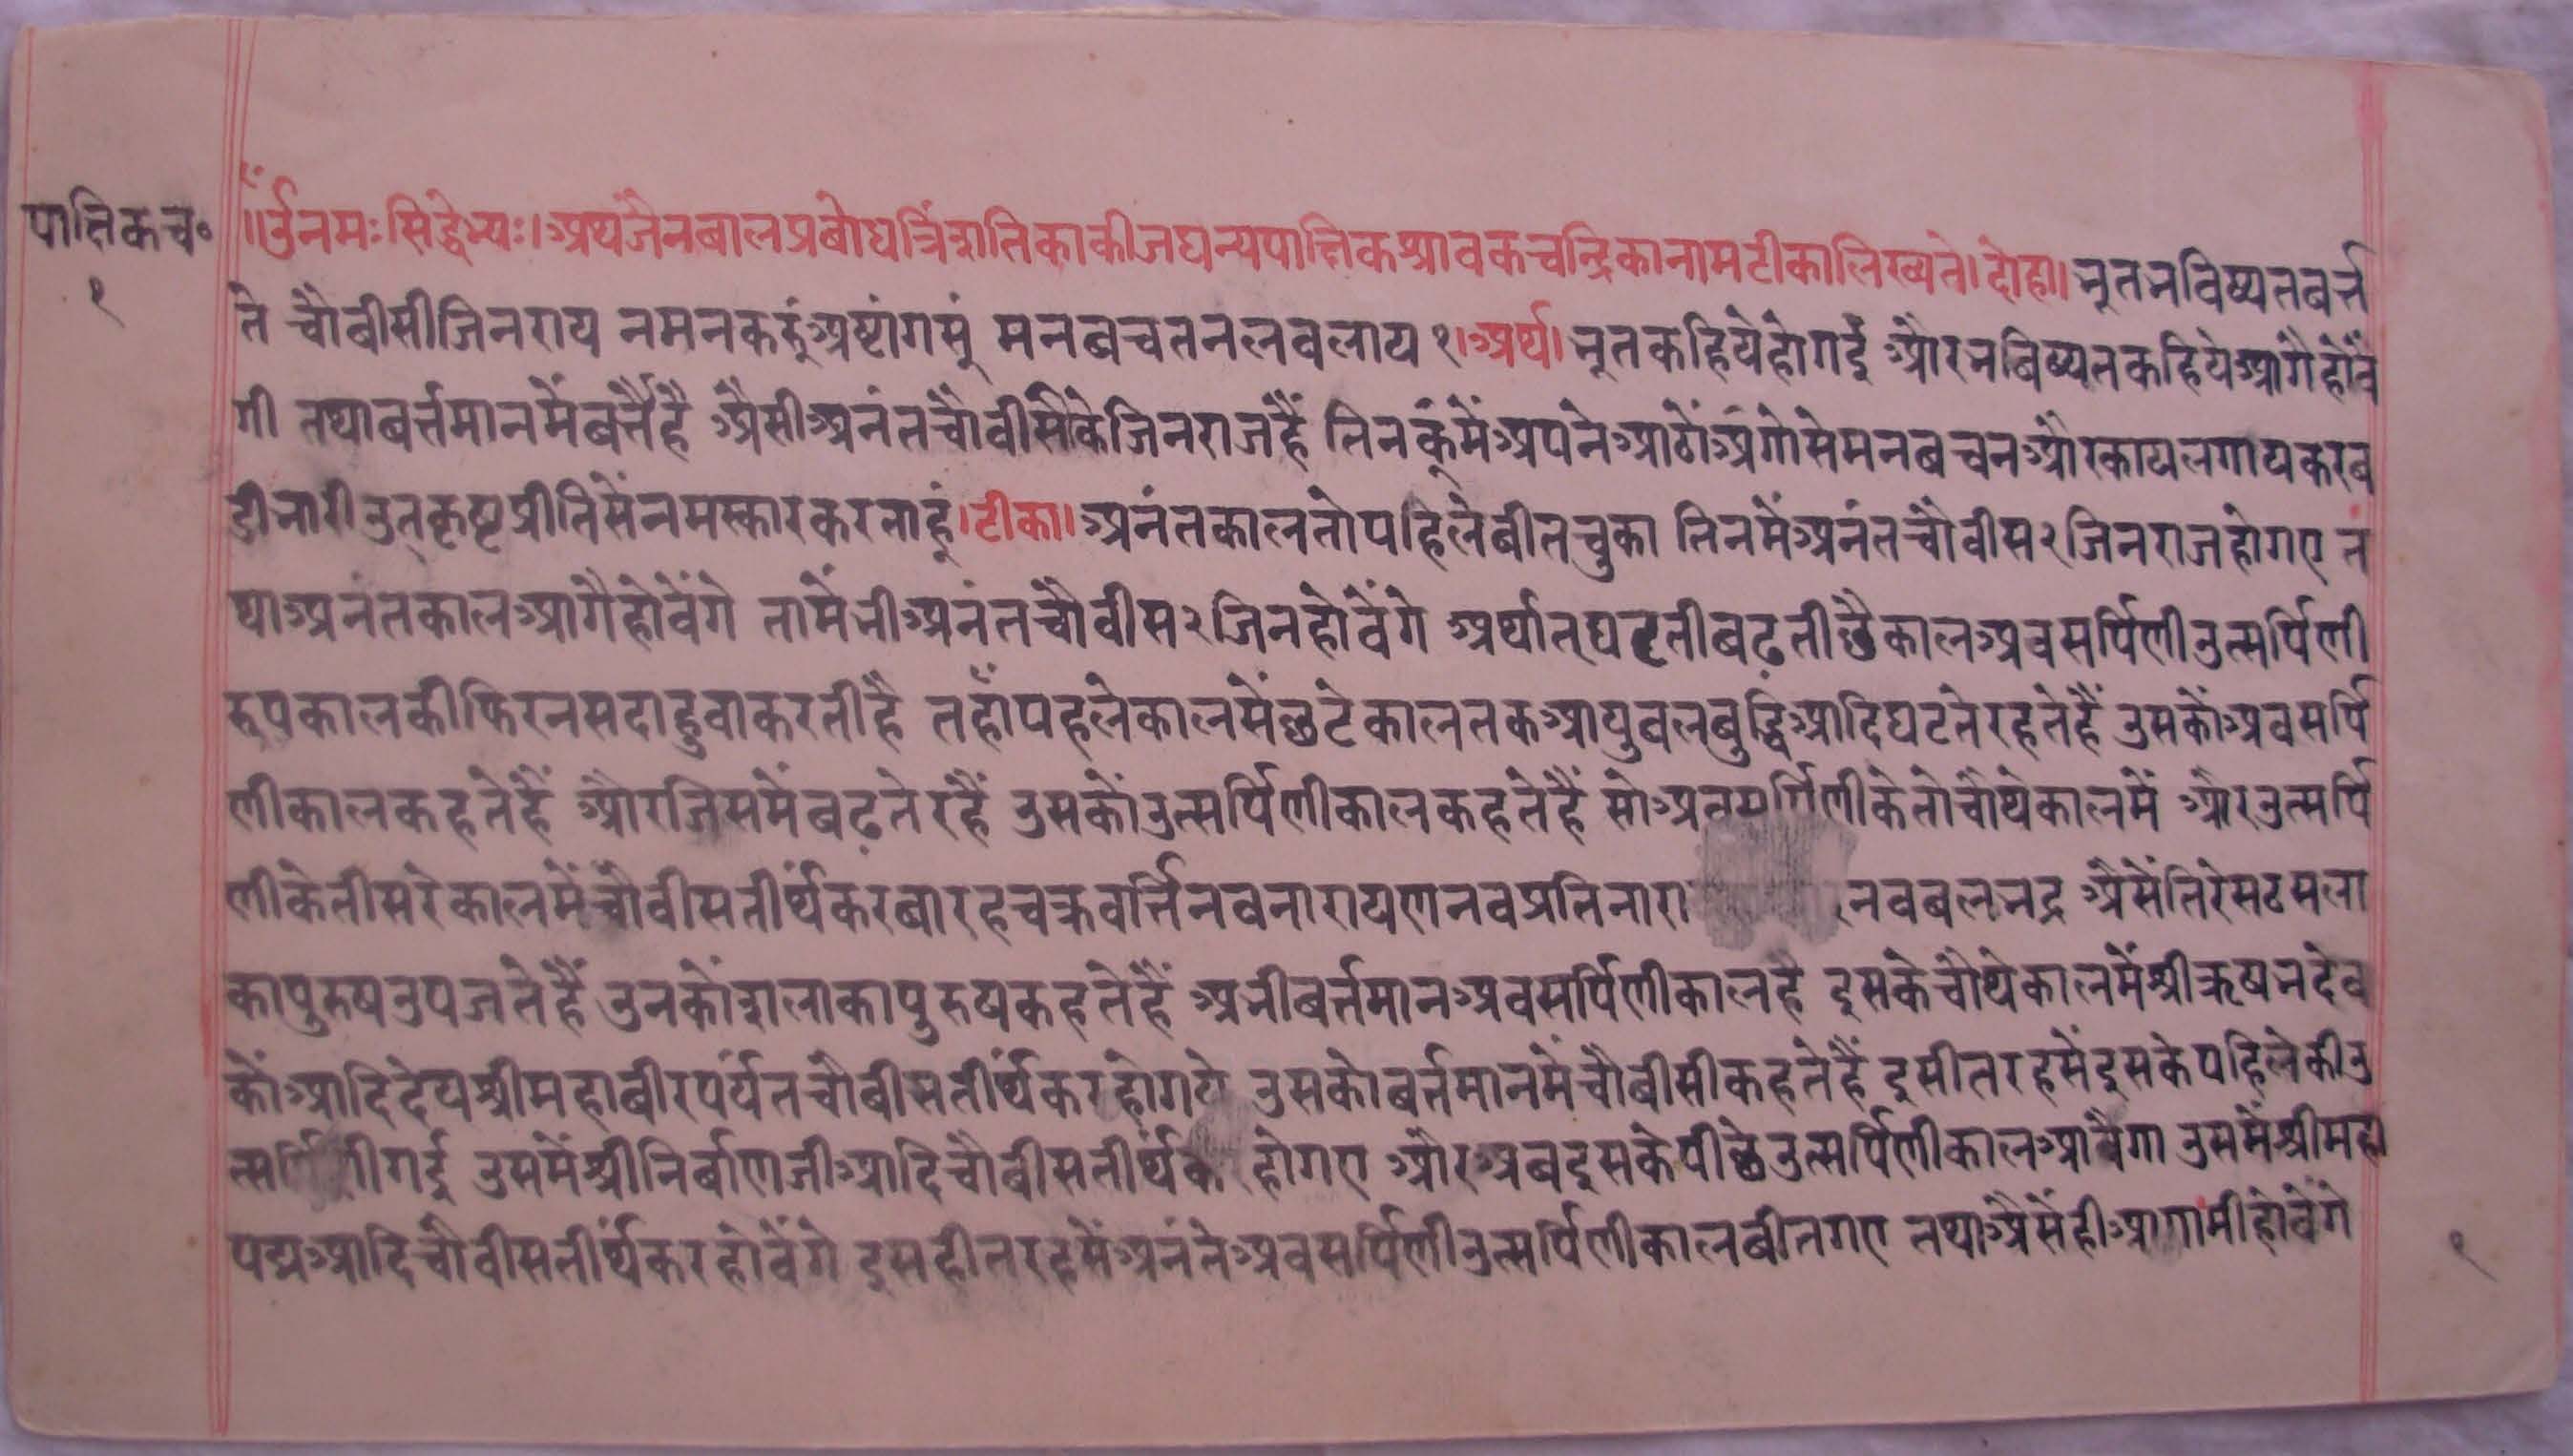 पाक्षिकच॰
१
।।ॐनमःसिद्धेभ्यः।अथजैनबालप्रबोधत्रिंशतिकाकीजघन्यपाक्षिकश्रावकचन्द्रिकानामटीकालिख्यते।दोहा।भूतभविष्यतबर्त्त
ते चौबीसीजिनराय नमनकरूंअष्टांगसुं मनबचतनलवलाय १।अर्थ।भूतकहियेहोगई औरभबिष्यतकहियेआगैहोवें
गी तथाबर्त्तमानमेंबर्त्तैहै अैसीअनंतचौवीसीकेजिनराजहैं तिनकूंमेंअपनेआठोंअंगोसेमनबचनऔरकायलगायकरब
ड़ीभारीउत्कृष्टप्रीतिसेंनमस्कारकरताहूं।टीका।अनंतकालतोपहिलेबीतचुका तिनमेंअनंतचौवीस२जिनराजहोगए त
थाअनंतकालआगैहोवेंगे तामेंभीअनंतचौवीस२जिनहोवेंगे अर्थात्घटतीबढ़तीछैकालअवसर्पिणीउत्सर्पिणी
रूपकालकीफिरनसदाहुवाकरतीहै तहाँपहलेकालमेंछटेकालतकआयुबलबुद्धिआदिघटतेरहतेहैं उसकोंअवसर्पि
णीकालकहतेहैं औरजिसमेंबढ़तेरहैं उसकोंउत्सर्पिणीकालकहतेहैं सोअवसर्पिणीकेतोचौथेकालमें औरउत्सर्पि
णीकेतीसरेकालमेंचौवीसतीर्थंकरबारहचक्रवर्त्तिनवनारायणनवप्रतिनारा नवबलभद्र अैसेंतिरेसठसला
कापुरुषउपजतेहैं उनकोंशलाकापुरुषकहतेहैं अभीबर्त्तमानअवसर्पिणीकालहै इसकेचौथेकालमेंश्रीऋषभदेव
कोंआदिदेयश्रीमहाबीरपर्यंतचौबीसतीर्थंकरहोगये उसकोबर्त्तमानमेंचौबीसीकहतेहैं इसीतरहसेंइसकेपहिलेकीउ
त्सर्पिणीगई उसमेंश्रीनिर्बाणजीआदिचौबीसतीर्थंकरहोगए औरअबइसकेपीछेउत्सर्पिणीकालआवैगा उसमेंश्रीमहा
पद्मआदिचौवीसतीर्थंकरहोवेंगे इसहीतरहसेंअनंतेअवसर्पिणीउत्सर्पिणीकालबीतगए तथाअैसेंहीआगामीहोवेंगे
१